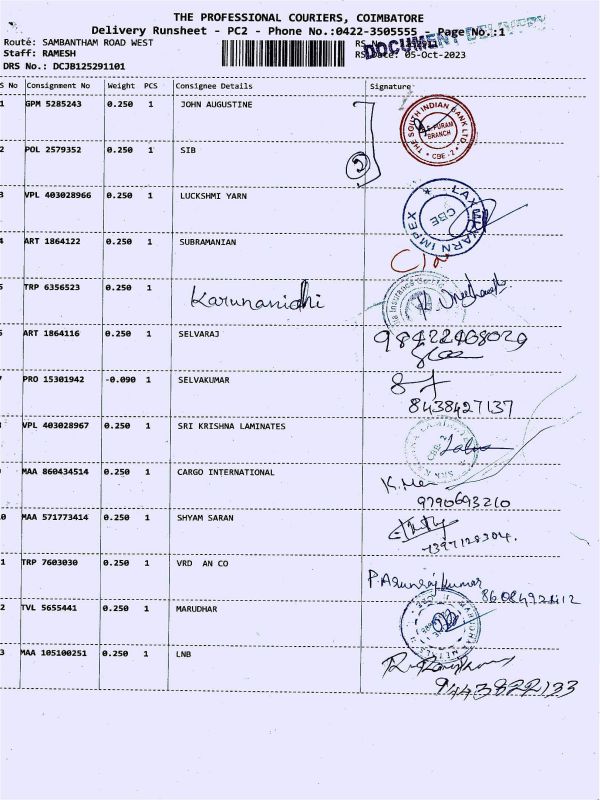 THE PROFESSIONAL COURIERS, COIMBATORE
Delivery Runsheet - PC2 - Phone No.:0422-3505555 - Page No.:1
DOCUMENT DELIVERY
Route: SAMBANTHAM ROAD WEST
Staff: RAMESH
RS Date: 05-Oct-2023
DRS No.: DCJB125291101
S No Consignment No Weight PCS Consignee Details Signature
1 GPM 5285243 0.250 1 JOHN AUGUSTINE
THE SOUTH INDIAN BANK LTD.
R.S PURAM
BRANCH
CBE - 2
2 POL 2579352 0.250 1 SIB
2
3 VPL 403028966 0.250 1 LUCKSHMI YARN
CBE
YARN IMPEX
4 ART 1864122 0.250 1 SUBRAMANIAN
5 TRP 6356523 0.250 1 Karunanidhi
6 ART 1864116 0.250 1 SELVARAJ
7 PRO 15301942 -0.090 1 SELVAKUMAR
8438427137
8 VPL 403028967 0.250 1 SRI KRISHNA LAMINATES
CBE-2
9 MAA 860434514 0.250 1 CARGO INTERNATIONAL
9790693210
10 MAA 571773414 0.250 1 SHYAM SARAN
11 TRP 7603030 0.250 1 VRD AN CO
P.Arunrajkumar
12 TVL 5655441 0.250 1 MARUDHAR
13 MAA 105100251 0.250 1 LNB
9443822133